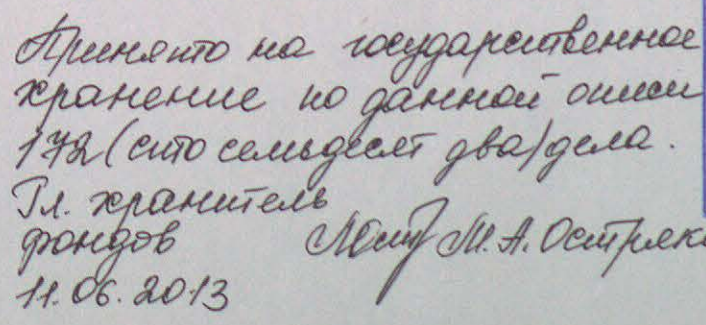 Принято на государственное
хранение по данной описи
172 (сто семьдесят два) дела.
Гл. хранитель
фондов М.А. Остряк
11.06.2013